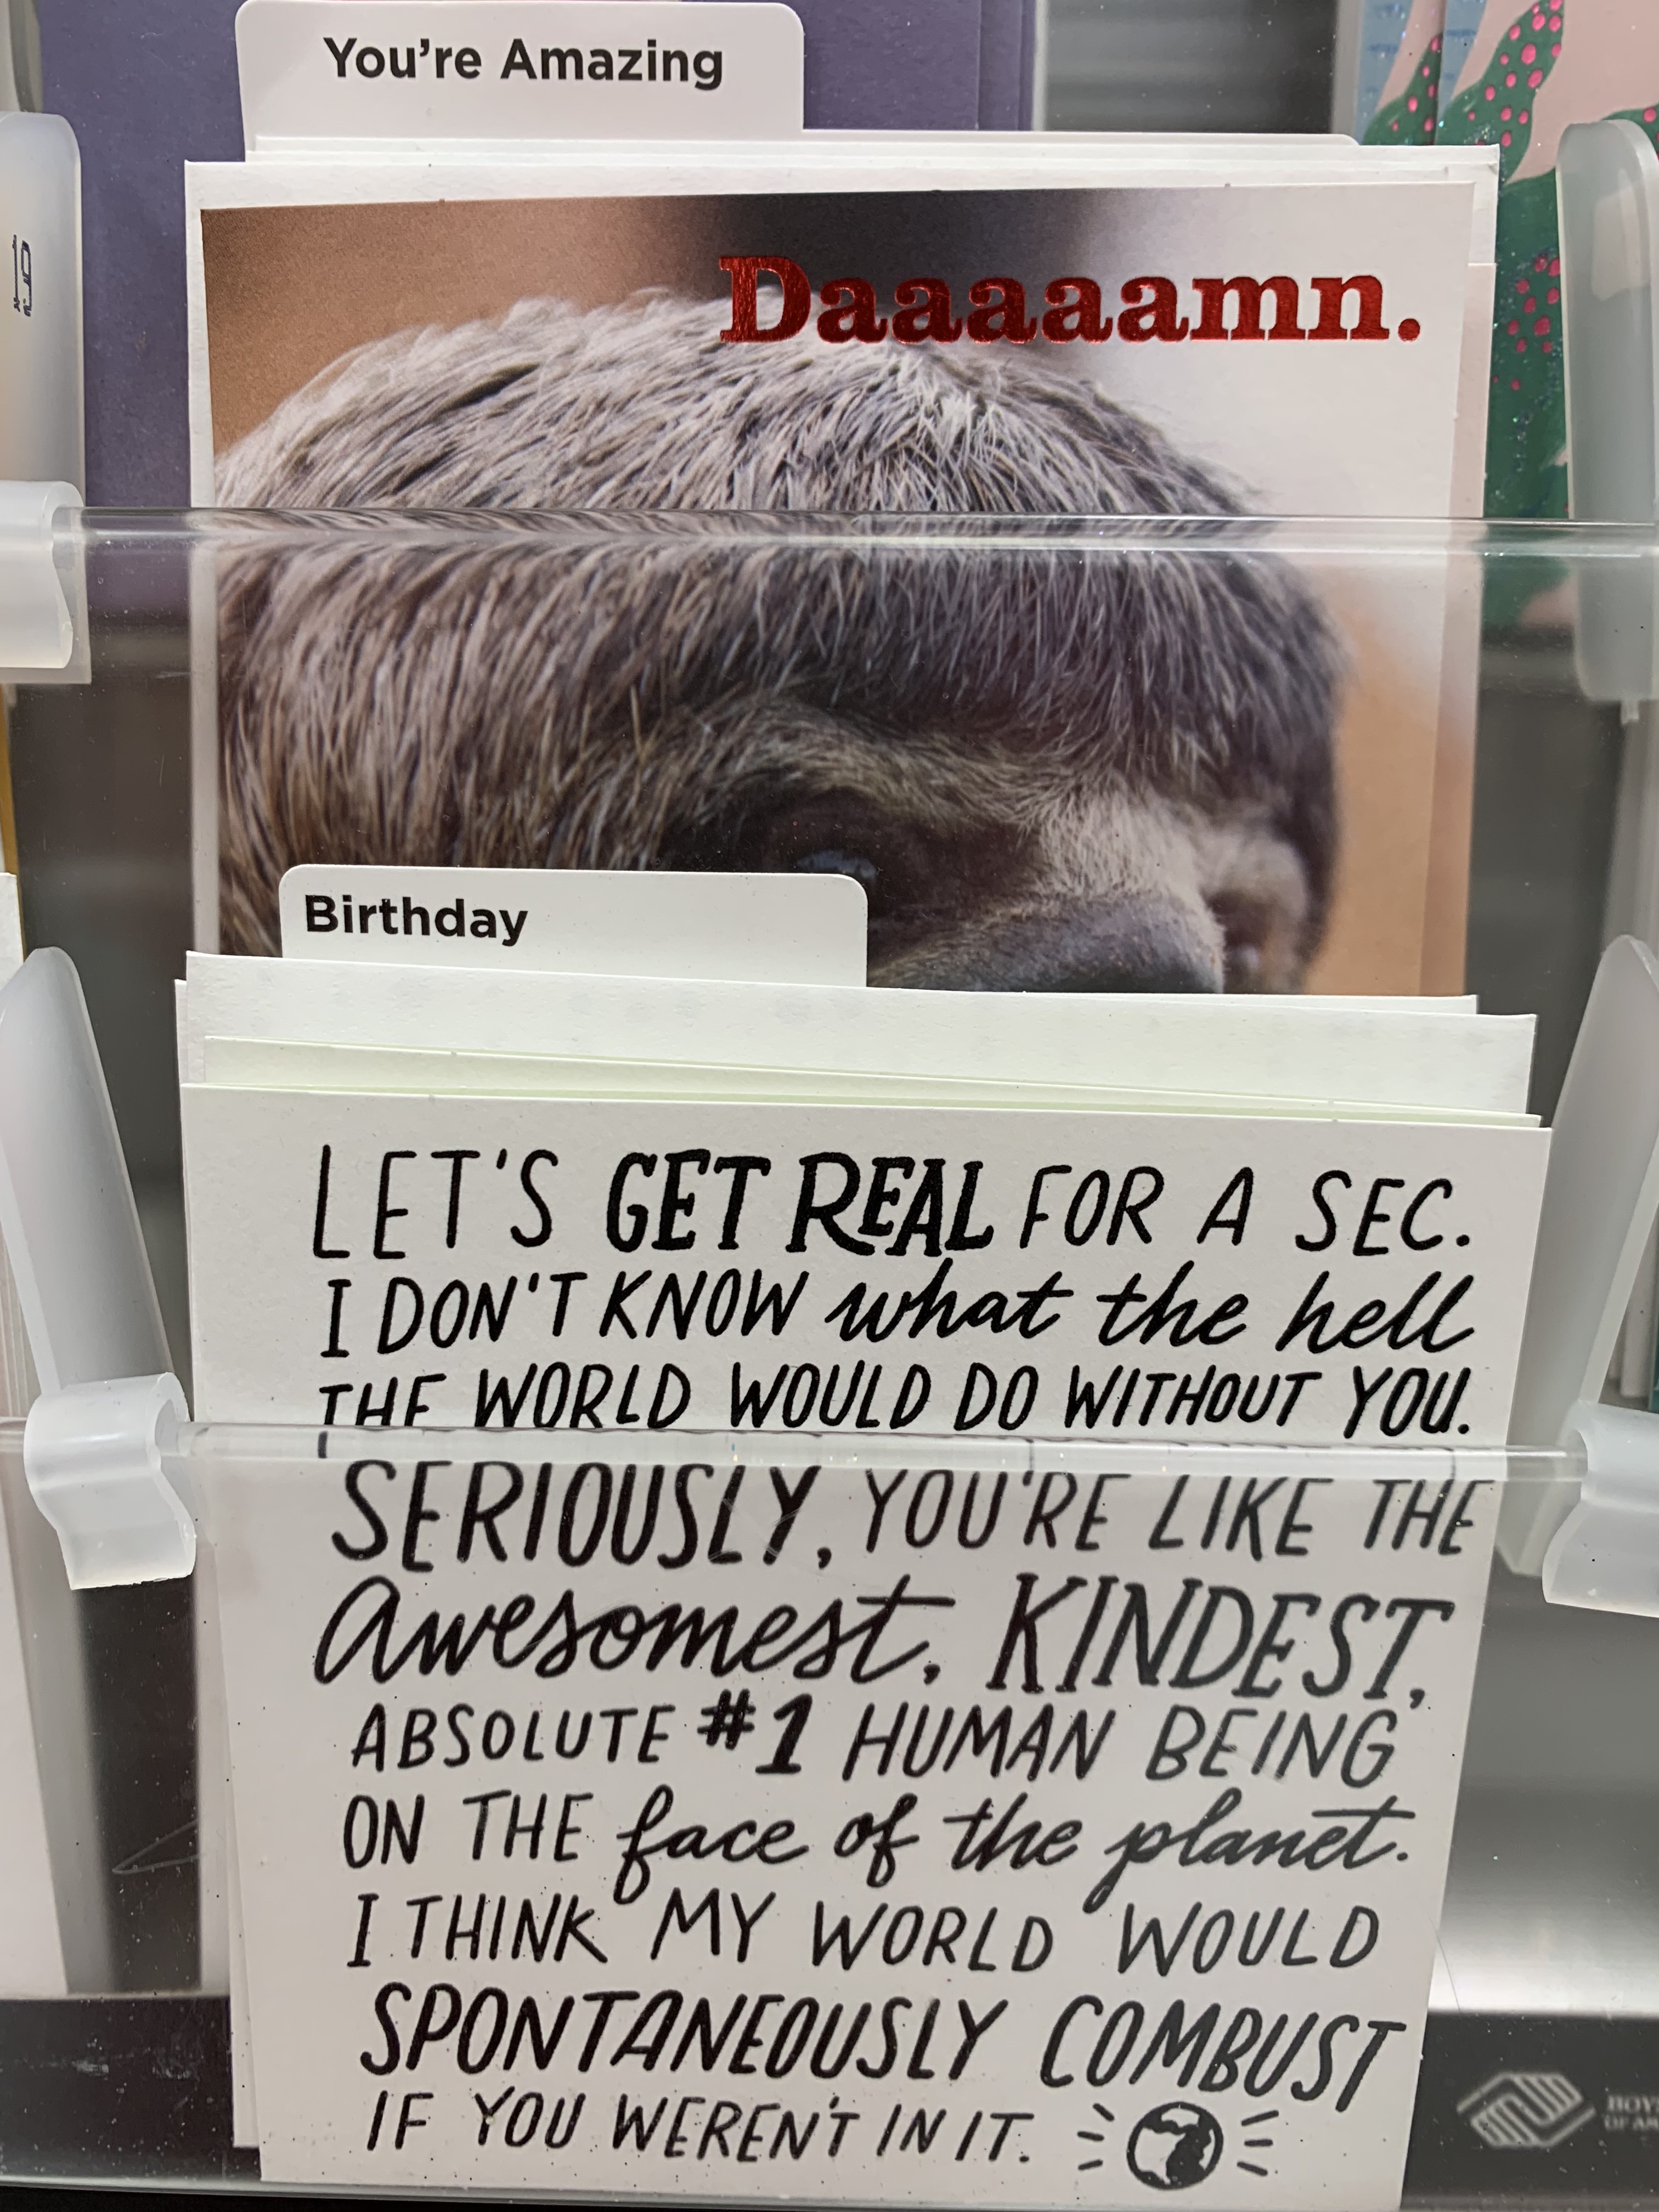 You're Amazing
Daaaaaamn.
Birthday
LET'S GET REAL FOR A SEC.
I DON'T KNOW what the hell
THE WORLD WOULD DO WITHOUT YOU.
SERIOUSLY, YOU'RE LIKE THE
Awesomest, KINDEST,
ABSOLUTE #1 HUMAN BEING
ON THE face of the planet.
I THINK MY WORLD WOULD
SPONTANEOUSLY COMBUST
IF YOU WEREN'T IN IT.